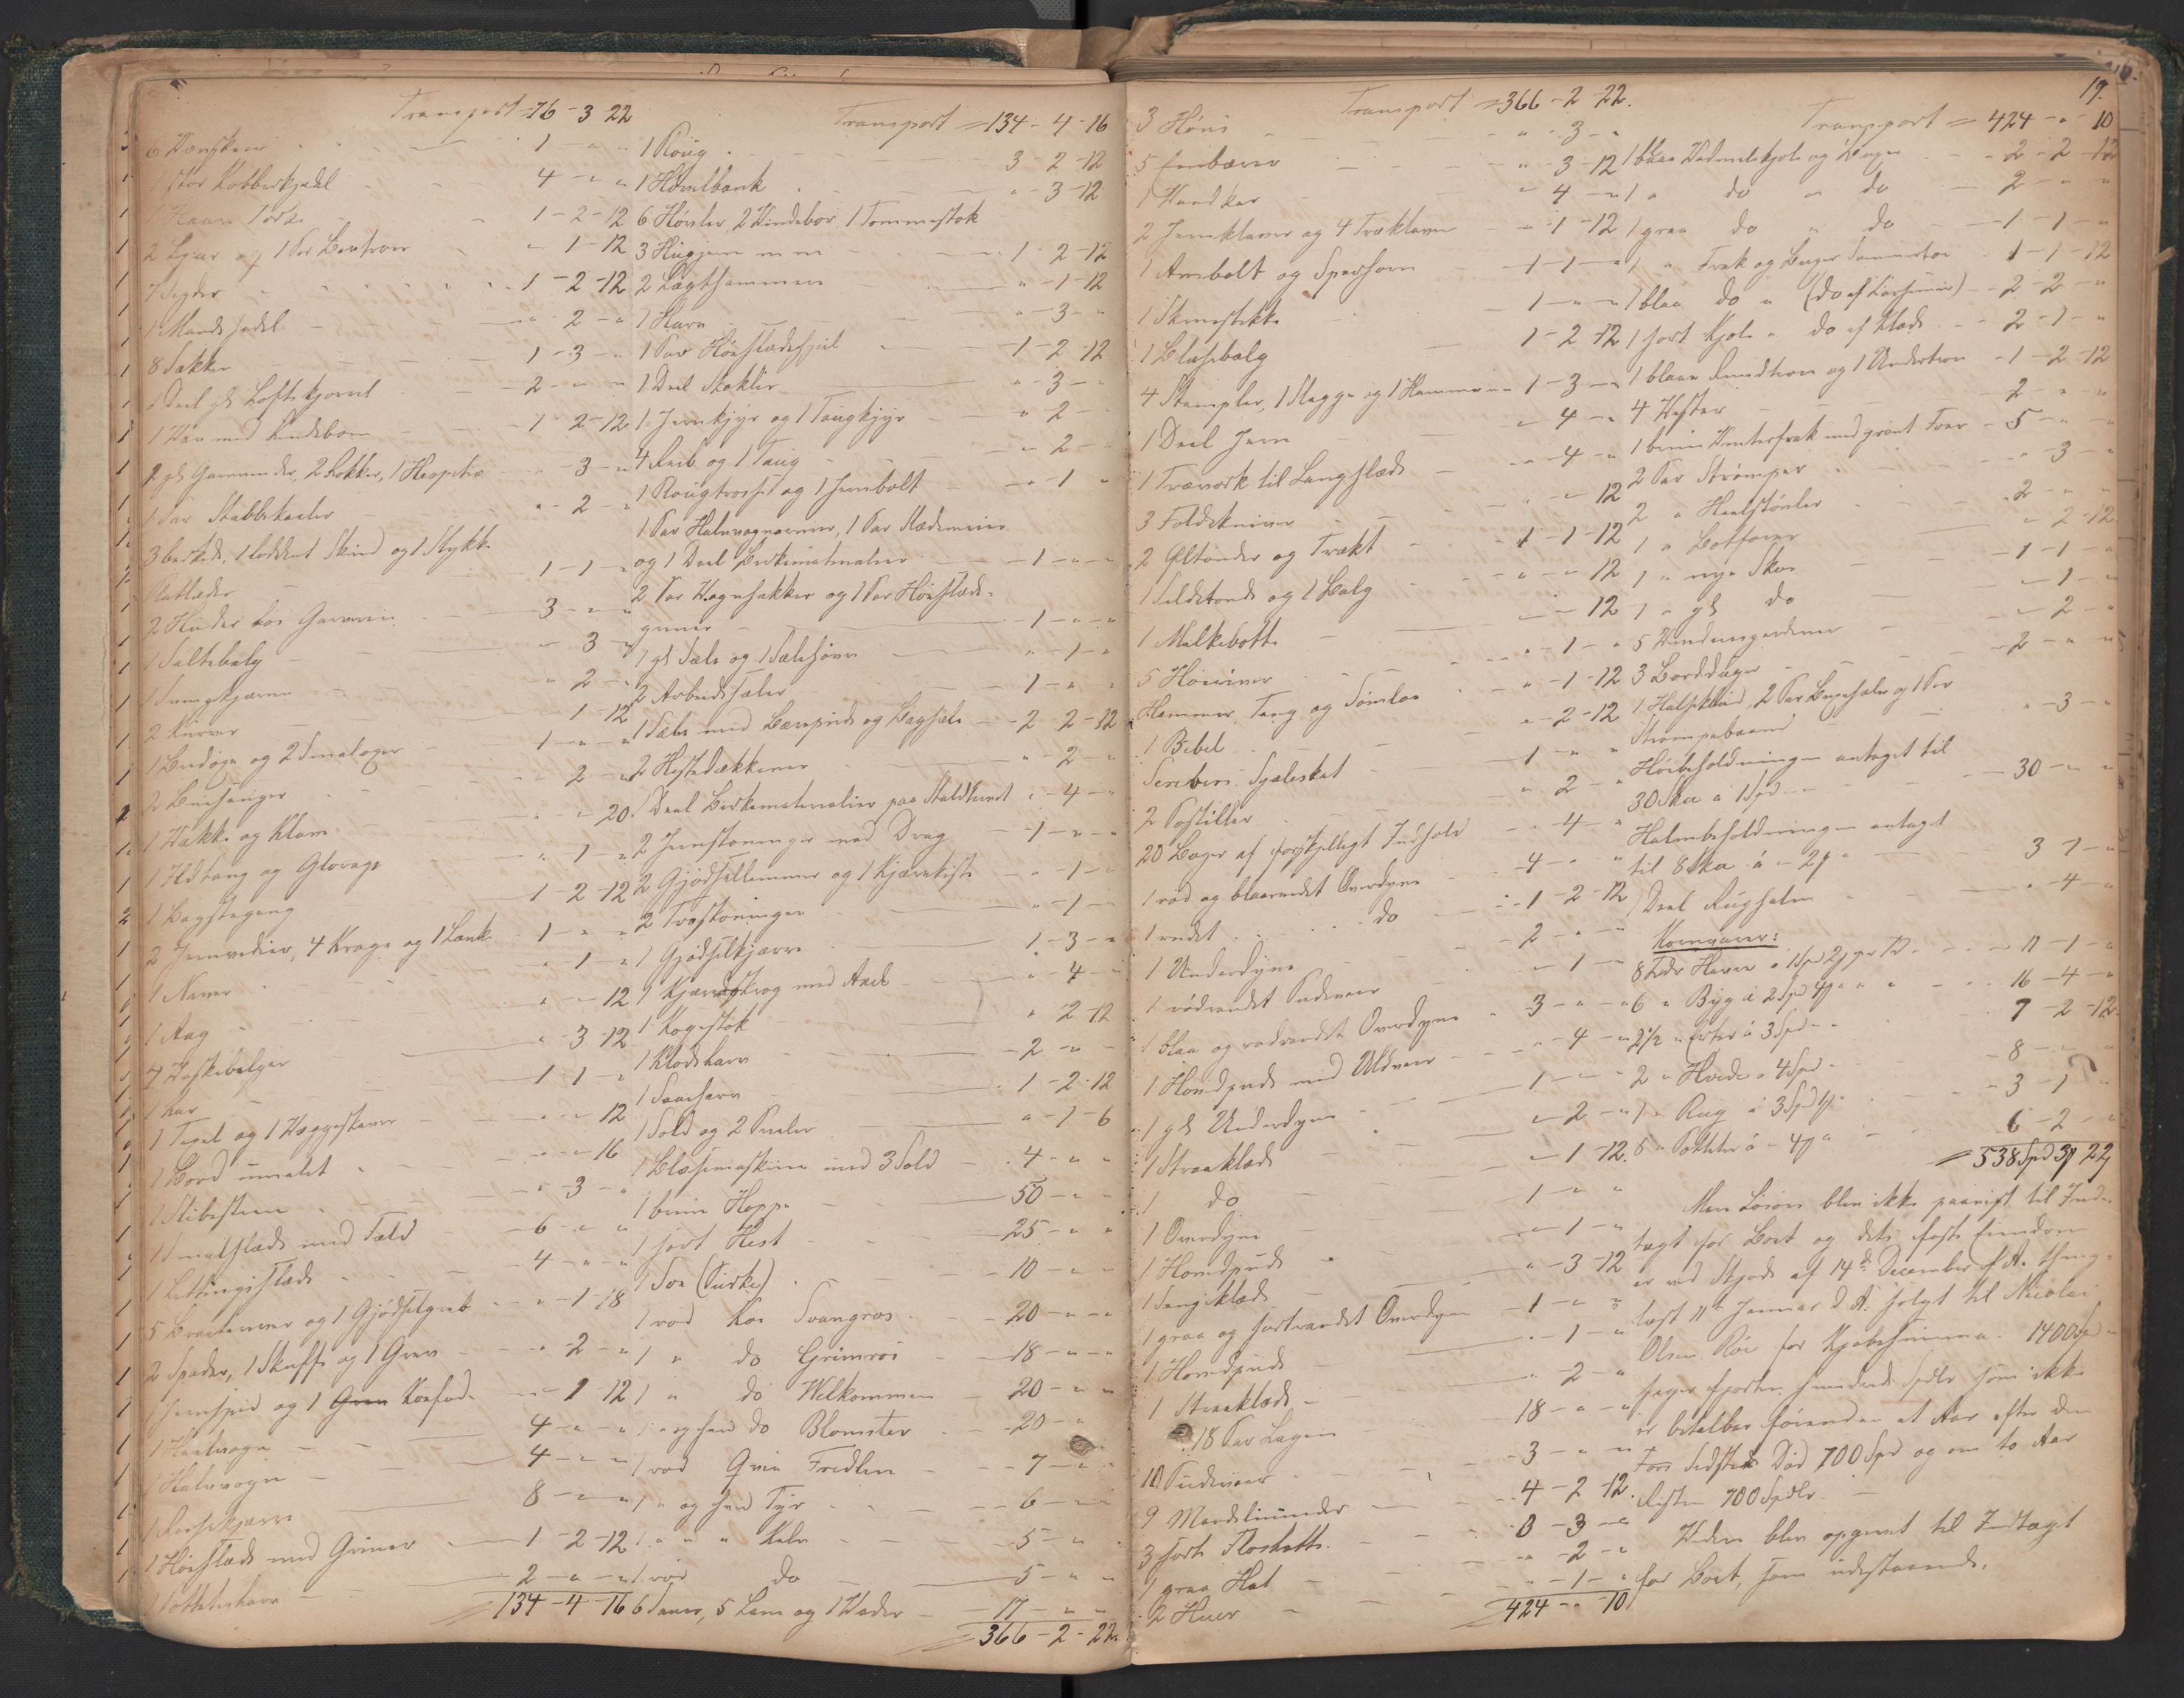 Transport = 76 - 3 22
6 Vængkaar 1 - " "
1 stor Kobberkjedel 4 - " "
1 Haand Tørk 1 - 2 - 12
2 Lyar og 1 Par 1 - 12
7 Segder 1 - 2 - 12
1 Mandssadel " 2 - "
8 Sækker 1 - 3 - "
1 Deel gl. Loftskjørsel 2 - " "
1 Par med 1 - 2 - 12
2 gl. 2 Rokker, 1 Hespetræ " - 3 - "
1 Par Stabbekarder " - 2 -
3 beredt, 1 loddent Skind og 1 Stykke
Saltlæder 1 - 1 - "
2 Huder hos Garveren 3 - " "
1 Saltebalg " 3 "
1 " 2 -
2 Kurver 1 - 12
1 Bredøxe og 2 Smaaøxer 1 - " "
2 " 2 - "
1 Hakke og Klove " " 20
1 Ildtang og Glorage " 1 - "
1 Bagstegang 1 2 - 12
2 Jernvedier, 4 Krage og 1 Lænke 1 - " "
1 Naver " - 1 - "
1 Aag " - " 12
4 Vaskebalger " - 3 12
1 Kar 1 - 1 - "
1 Taxel og 1 " - " 12
1 Bord umalet " - " 16
1 Slibesteen " - 3 -
1 Smalslæde med Fæld 6 - " "
1 Letlingsslæde 4 - " "
5 og 1 Gjødselgreb " - 1 - 18
2 Spader, 1 Skuffe og 1 Grev " - 2 - "
1 Jernspid og 1 Korfad " 1 12
1 Høstvogn 4 - " "
1 Halvvogn 4 - " "
1 Reisekjærre 8 - " "
1 Høislæde med Griner 1 - 2 - 12
1 Potetesharv 2 - " - "
= 134 - 4 - 16
Transport = 134 - 4 - 16
1 Roug 3 - 2 - 12
1 Høvelbænk " - 3 - 12
6 Høvler, 2 Vindebor 1 Tommestok
3 Hugjern m m 1 - 2 - 12
2 Lægthammere " - 1 - 12
1 Harv " - 3 - "
1 Par 1 - 2 - 12
1 Deel Skokler " - 3 - "
1 Jernkjyr og 1 Taugkjyr " 2 - "
4 Reib og 1 Taug " - 2 -
1 Rougtrosse og 1 Jernbolt " - 1 "
1 Par Halvvognarmer, 1 Par Slædemeier
og 1 Deel Virkematerialier 1 - " - "
2 Par Vognhakker og 1 Par Høislæde-
griner - 1 - " - "
1 gl. Sæle og 1 Sælehøvre " - 1 - "
2 Arbeidssæler 1 - " "
1 Sæle med Bærepude og Bagsæle 2 2 - 12
2 Hestedækkener " - 2 - "
1 Deel Virkematerialier paa Staldtrevet " - 4 - "
2 Jernstønninger med Drag 1 - " - "
2 Gjødsellemmer og 1 Kjærrekiste " - 1 - "
2 Træstønninger " - 1 - "
1 Gjødselkjærre 1 - 3 - "
1 Kjærreskrog med Axel " - 4 -
1 Kogestok " 2 - 12
1 Klodsharv 2 - " -
1 Saaeharv 1 - 2 - 12
1 Sold og 2 " - 1 - 6
1 Blæsemaskine med 3 Sold 4 - " "
1 brun Hoppe 50 - " -
1 sort Hest 25 - " "
1 Soe (Purke) 10 - " -
1 rød Koe Svangros 20 - " - "
1 " do Grimroi 18 - " - "
1 " do Velkommen 20 - " "
1 " og hvid do Blomster 20 - "
1 rød Qvie Fredlin 7 - " "
1 " og hvid Tyr 6 - " "
1 " " " Kalv 5 - " "
1 rød do 5 - " "
6 Sauer, 5 Lam og 1 Væder 17 - " -
= 366 - 2 - 22.
Transport = 366 - 2 - 22.
3 Høns " - 3 - "
5 Embærer " - 3 - 12
1 Vandkar " 4 - "
2 Jernklaver og 4 Træklaver " - 1 - 12
1 Ambolt og Sperhorn 1 - 1 - "
1 1 - " - "
1 Blæsebælg 1 - 2 12
4 Stempler, 1 Slægge og 1 Hammer 1 - 3 - "
1 Deel Jern " 4 - "
1 Træværk til Langslæde " - 4 - "
3 Foldeknive " - " 12
2 Øltønder og Trækt 1 - 1 - 12
1 Sildetønde og 1 Balg " - " 12
1 Melkebøtte " - 12
5 Høiriver " - 1 - "
Hammer, Tang og Sømlos " - 1 - 12
1 Bibel " - 2 - 12
Scrivers Sjæleskat 1 - " "
2 Postiller " 2 - "
20 Bøger af forskjelligt Indhold " - 4 - "
1 rød og blaarandet Overdyne 4 - " "
1 randet do 1 - 2 - 12
1 Underdyne 2 - " "
1 rødrandet Pudevaar " - 1 -
1 blaa og rødrandet Overdyne 3 - " - "
1 Hovedpude med Uldvaar " - 4 - "
1 gl. Underdyne 1 - " - "
1 Straaklæde " - 2 - "
1 do " - 1 12.
1 Overdyne 1 - " "
1 Hovedpude " - 1 - "
1 Sengeklæde " - 3 - 12
1 graa og sortrandet Overdyne 1 - " "
1 Hovedpude " - 1 - "
1 Straaklæde " - 2 - "
18 Par Lagen 18 - " - "
10 Pudevaar 3 - " "
9 Mandslinneder 4 - 2 12.
3 sorte Floshatte 0 - 3 - "
1 graa Hat " - 2 - "
2 Huer " - 1 - "
424 - " 10
19.
Transport = 424 - " - 10
1 blaa Vadmelskjole og Buxer 2 - 2 - 12
1 " do " do 2 - " "
1 graa do " do 1 - 1 - "
1 " Frak og Buxer Sommertøi 1 - 1 - 12
1 blaa do " (do af Casimir) 2 - 2 - "
1 sort Kjole " do af Klæde 2 - 1 - "
1 blaa og 1 Undertrøie 1 - 2 - 12
4 Vester 2 - " "
1 brun Vinterfrak med grønt Foer 5 - " -
2 Par Strømper " 3 - "
2 " Halvstøvler 2 - " "
1 " Botforer " 2 - 12
1 " nye Skoe 1 - 1 - "
1 " gl. do " 1 - "
5 Vinduesgardiner " 2 - "
3 Borddúger 2 - " "
1 Halsklud, 2 Par Buxesæler og 1 Par
Strømpebaand " - 3 - "
Høibeholdningen antaget til
30 Ska á 1 Spd 30 - " "
Halmbeholdningen antaget
til 8 Ska á " 2 3 1 - "
1 Deel Rughalm " - 4 - "
Kornvarer:
8 Tdr Havre á 1 Spd 2 pr Td 11 - 1 - "
6 " Byg á 2 Spd 4 " " 16 - 4 - "
2 1/2 " Erter á 3 Spd 7 - 2 - 12
2 " Hvede á 4 Spd 8 - "
1 " Rug á 3 Spd 1 3 - 1 "
8 " Potteter á " 4 6 - 2 -
= 538 Spd 3 22
Men Løsøre blev ikke paavist til Ind-
tægt for Boet og dets faste Eiendom
er ved Skjøde af 14de December f. A. thing-
læst 11te Januar d. A. solgt til Nicolai
Olsen Roe for Kjøbesummen 1400 Spd
siger fjorten hundrede Spdlr som ikke
er betalbar førend et Aar efter den
sidstes Død 700 Spd og om to Aar
Resten 700 Spdlr.
Videre blev opgivet til Indtægt
for Boet, som udestaaende.